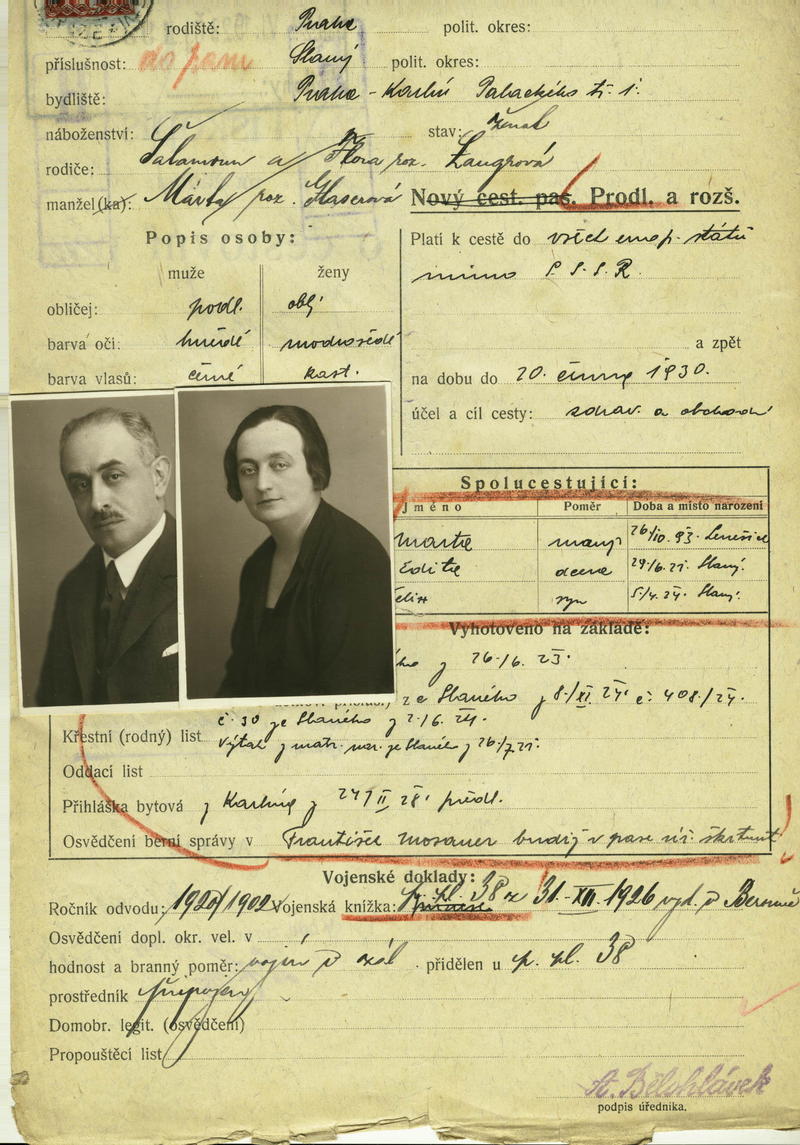 rodiště: Praha polit. okres:
příslušnost: do pasu Slaný polit. okres:
bydliště: Praha - Karlín Palackého tř. 1.
náboženství: stav: ženat
rodiče: Šalamoun a Flora roz. Langrová
manžel(ka): Márta roz. Glaserová Nový cest. pas. Prodl. a rozš.
Popis osoby:
muže ženy
obličej: podl. obl.
barva očí: hnědé modrošedé
barva vlasů: černé kašt.
Platí k cestě do všech evrop. států
mimo S. S. S. R.
a zpět
na dobu do 20. června 1930.
účel a cíl cesty: zdrav. a obchodní
Spolucestující:
jméno Poměr Doba a místo narození
Marta manž. 26/10. 93. Lenešice
Edita dcera 29/6. 21. Slaný.
syn 5/4. 24. Slaný.
Vyhotoveno na základě:
z 26./6. 23.
ze Slaného z 8./XI. 24. č. 408/24.
č. 30 ze Slaného z 2./6. 24.
Křestní (rodný) list Výtah z matr. nar. ze Slaného z 26/7. 21.
Oddací list
Přihláška bytová z Karlína z 24/II. 28. předl.
Osvědčení berní správy v František Mosauer budiž v pase škrtnut
Vojenské doklady:
Ročník odvodu: 1920/1902 Vojenská knížka: p. pl. 38 z 31.-XII. 1926 vyd. v Berouně
Osvědčení dopl. okr. vel. v
hodnost a branný poměr: vojín v zál. přidělen u p. pl. 38
prostředník
Domobr. legit. (osvědčení)
Propouštěcí list
A. Bělohlávek
podpis úředníka.